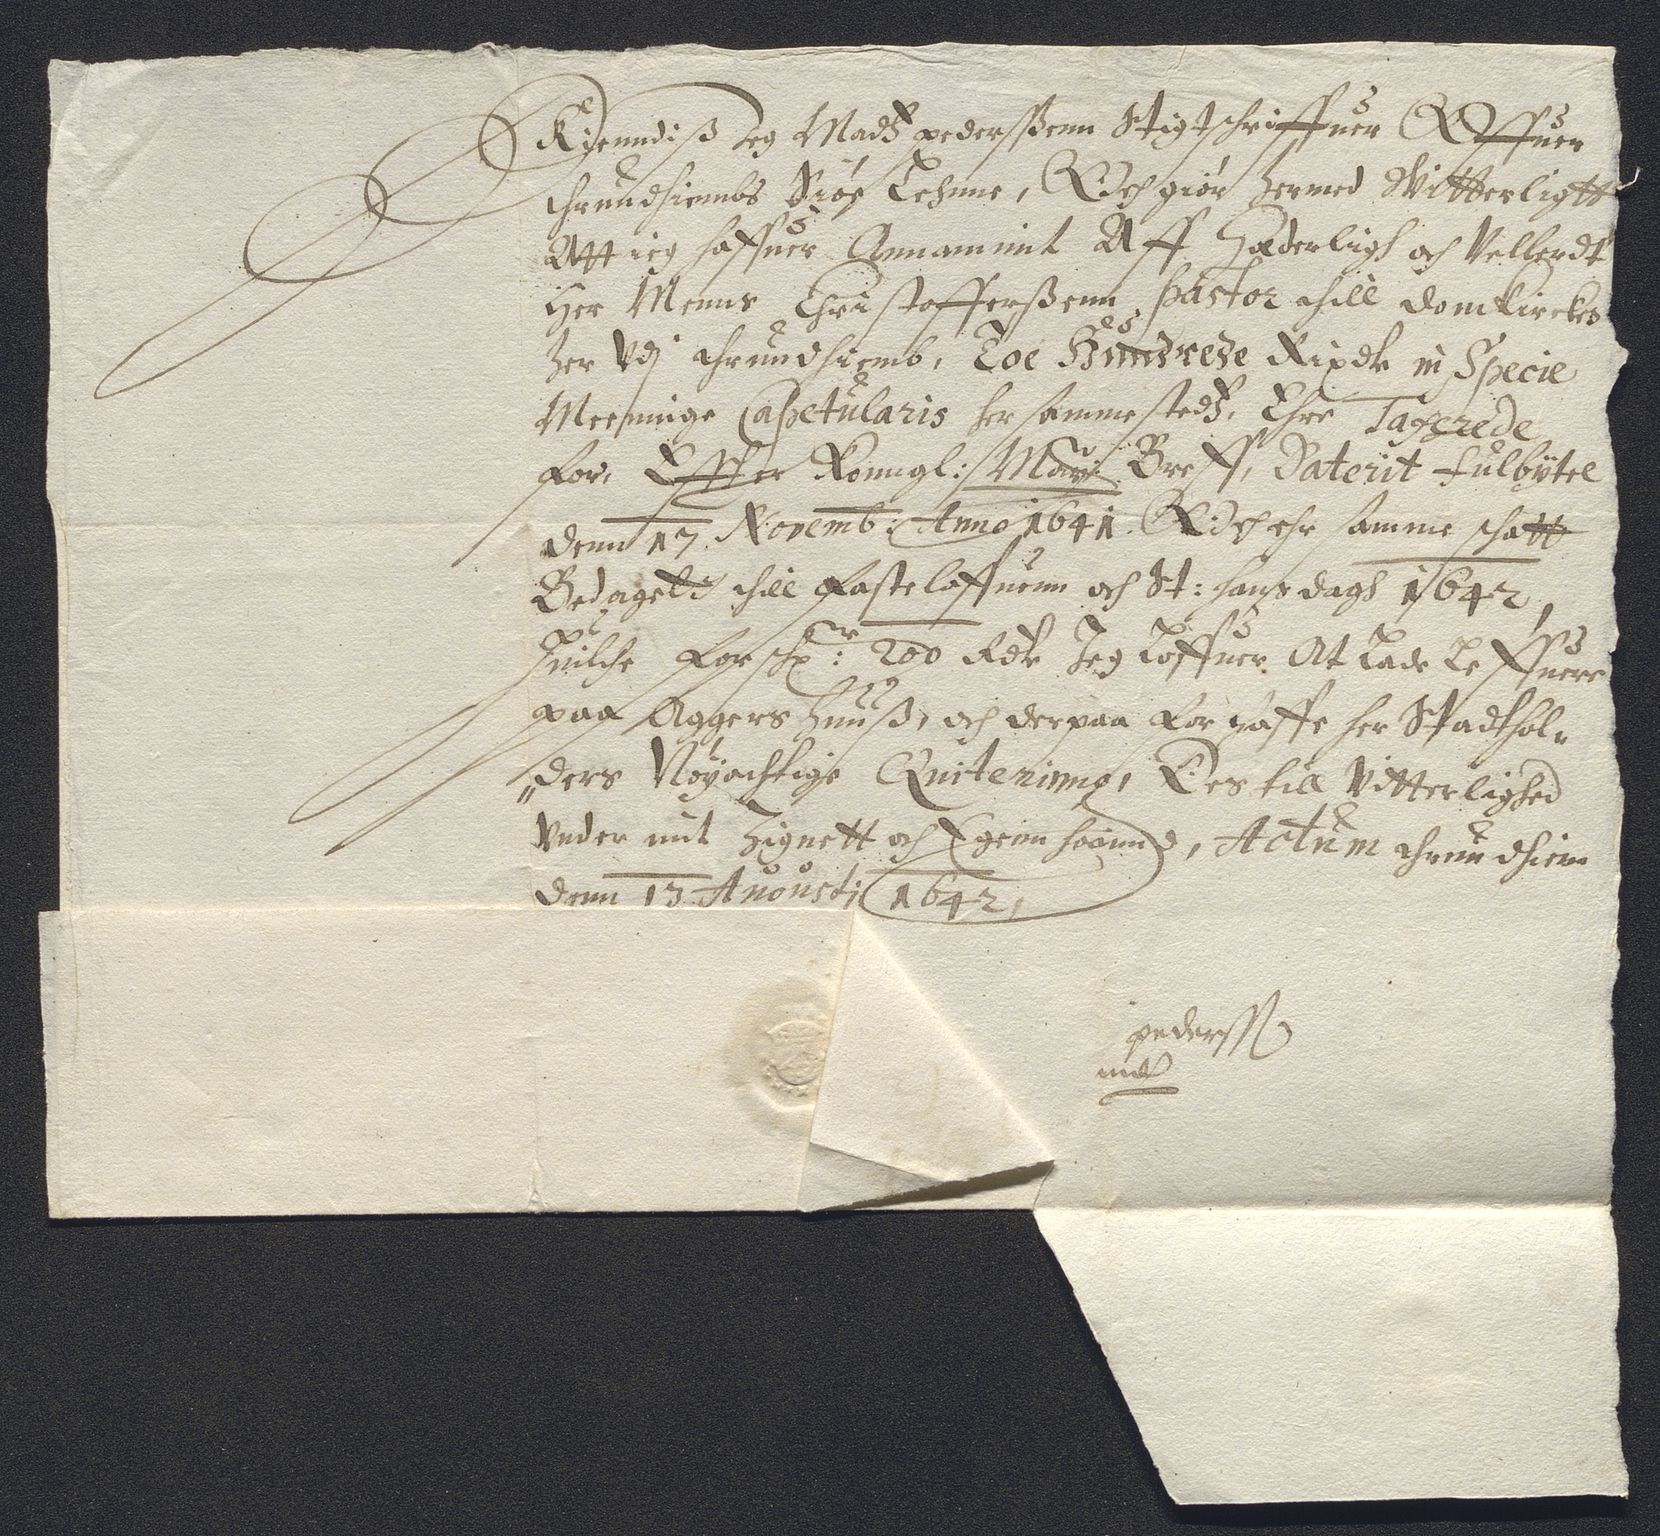 Kienndiß Jeg Madz pederßenn Stigtschriffuer Offuer
thrundhiembs Siøe Lehnne, Och giør hermed Witterligtt
Att ieg haffuer Annammit Aff Hæderligh och Vellerdt
Her Menns Christofferßenn pastor thill domkirckes
her Vdj thrundhiemb, Toe Hundrede Rixdr in Specie
Meenninge Capetularis her sammestedz, Ehre Taxerede
for, Effter Konngl: May: Breff, Daterit Fulbytel
denn 17 Novemb: Anno 1641. Och ehr samme schatt
Bedagett thill Fasteloffuenn och St: Hansdagh 1642,
Huilche forschr: 200 Rdr Jeg Loffuer At Lade Leffuere
paa Aggershuuß, och derpaa forschaffe her Stadthol„
„ders Nøyachtige Quiterinng, Des till Vitterlighed
Vnder mit Zignett och Egenn haannd, Actum thrundhiem
denn 13 Augustj 1642,
pederss
mdr